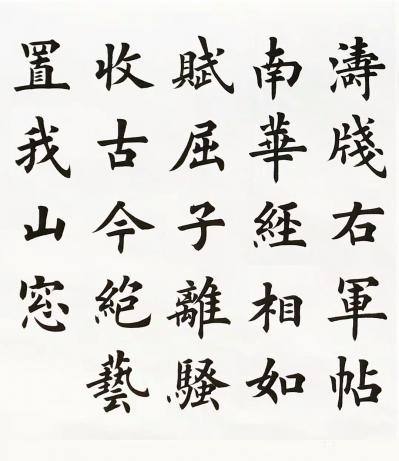 濤牋右軍帖
南華經相如
賦屈子離騷
收古今絕藝
置我山窓